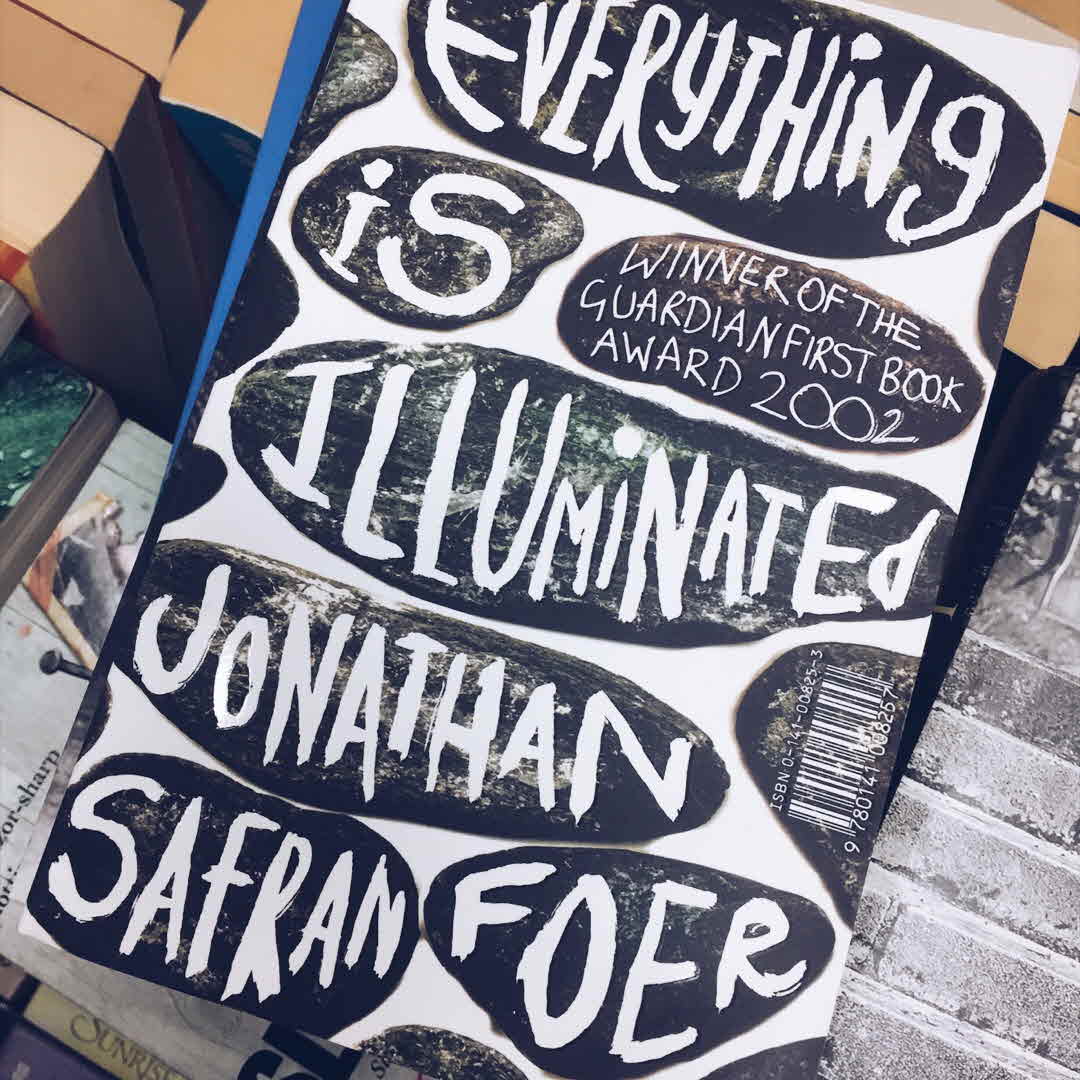 EVERYTHiNg
iS
WINNER OF THE
GUARDIAN FIRST BOOK
AWARD 2002
ILLUMiNATEd
JONATHAN
SAFRAN FOER
ISBN 0-14-100825-3
9 780141 008257
or-sharp
SUNRISE